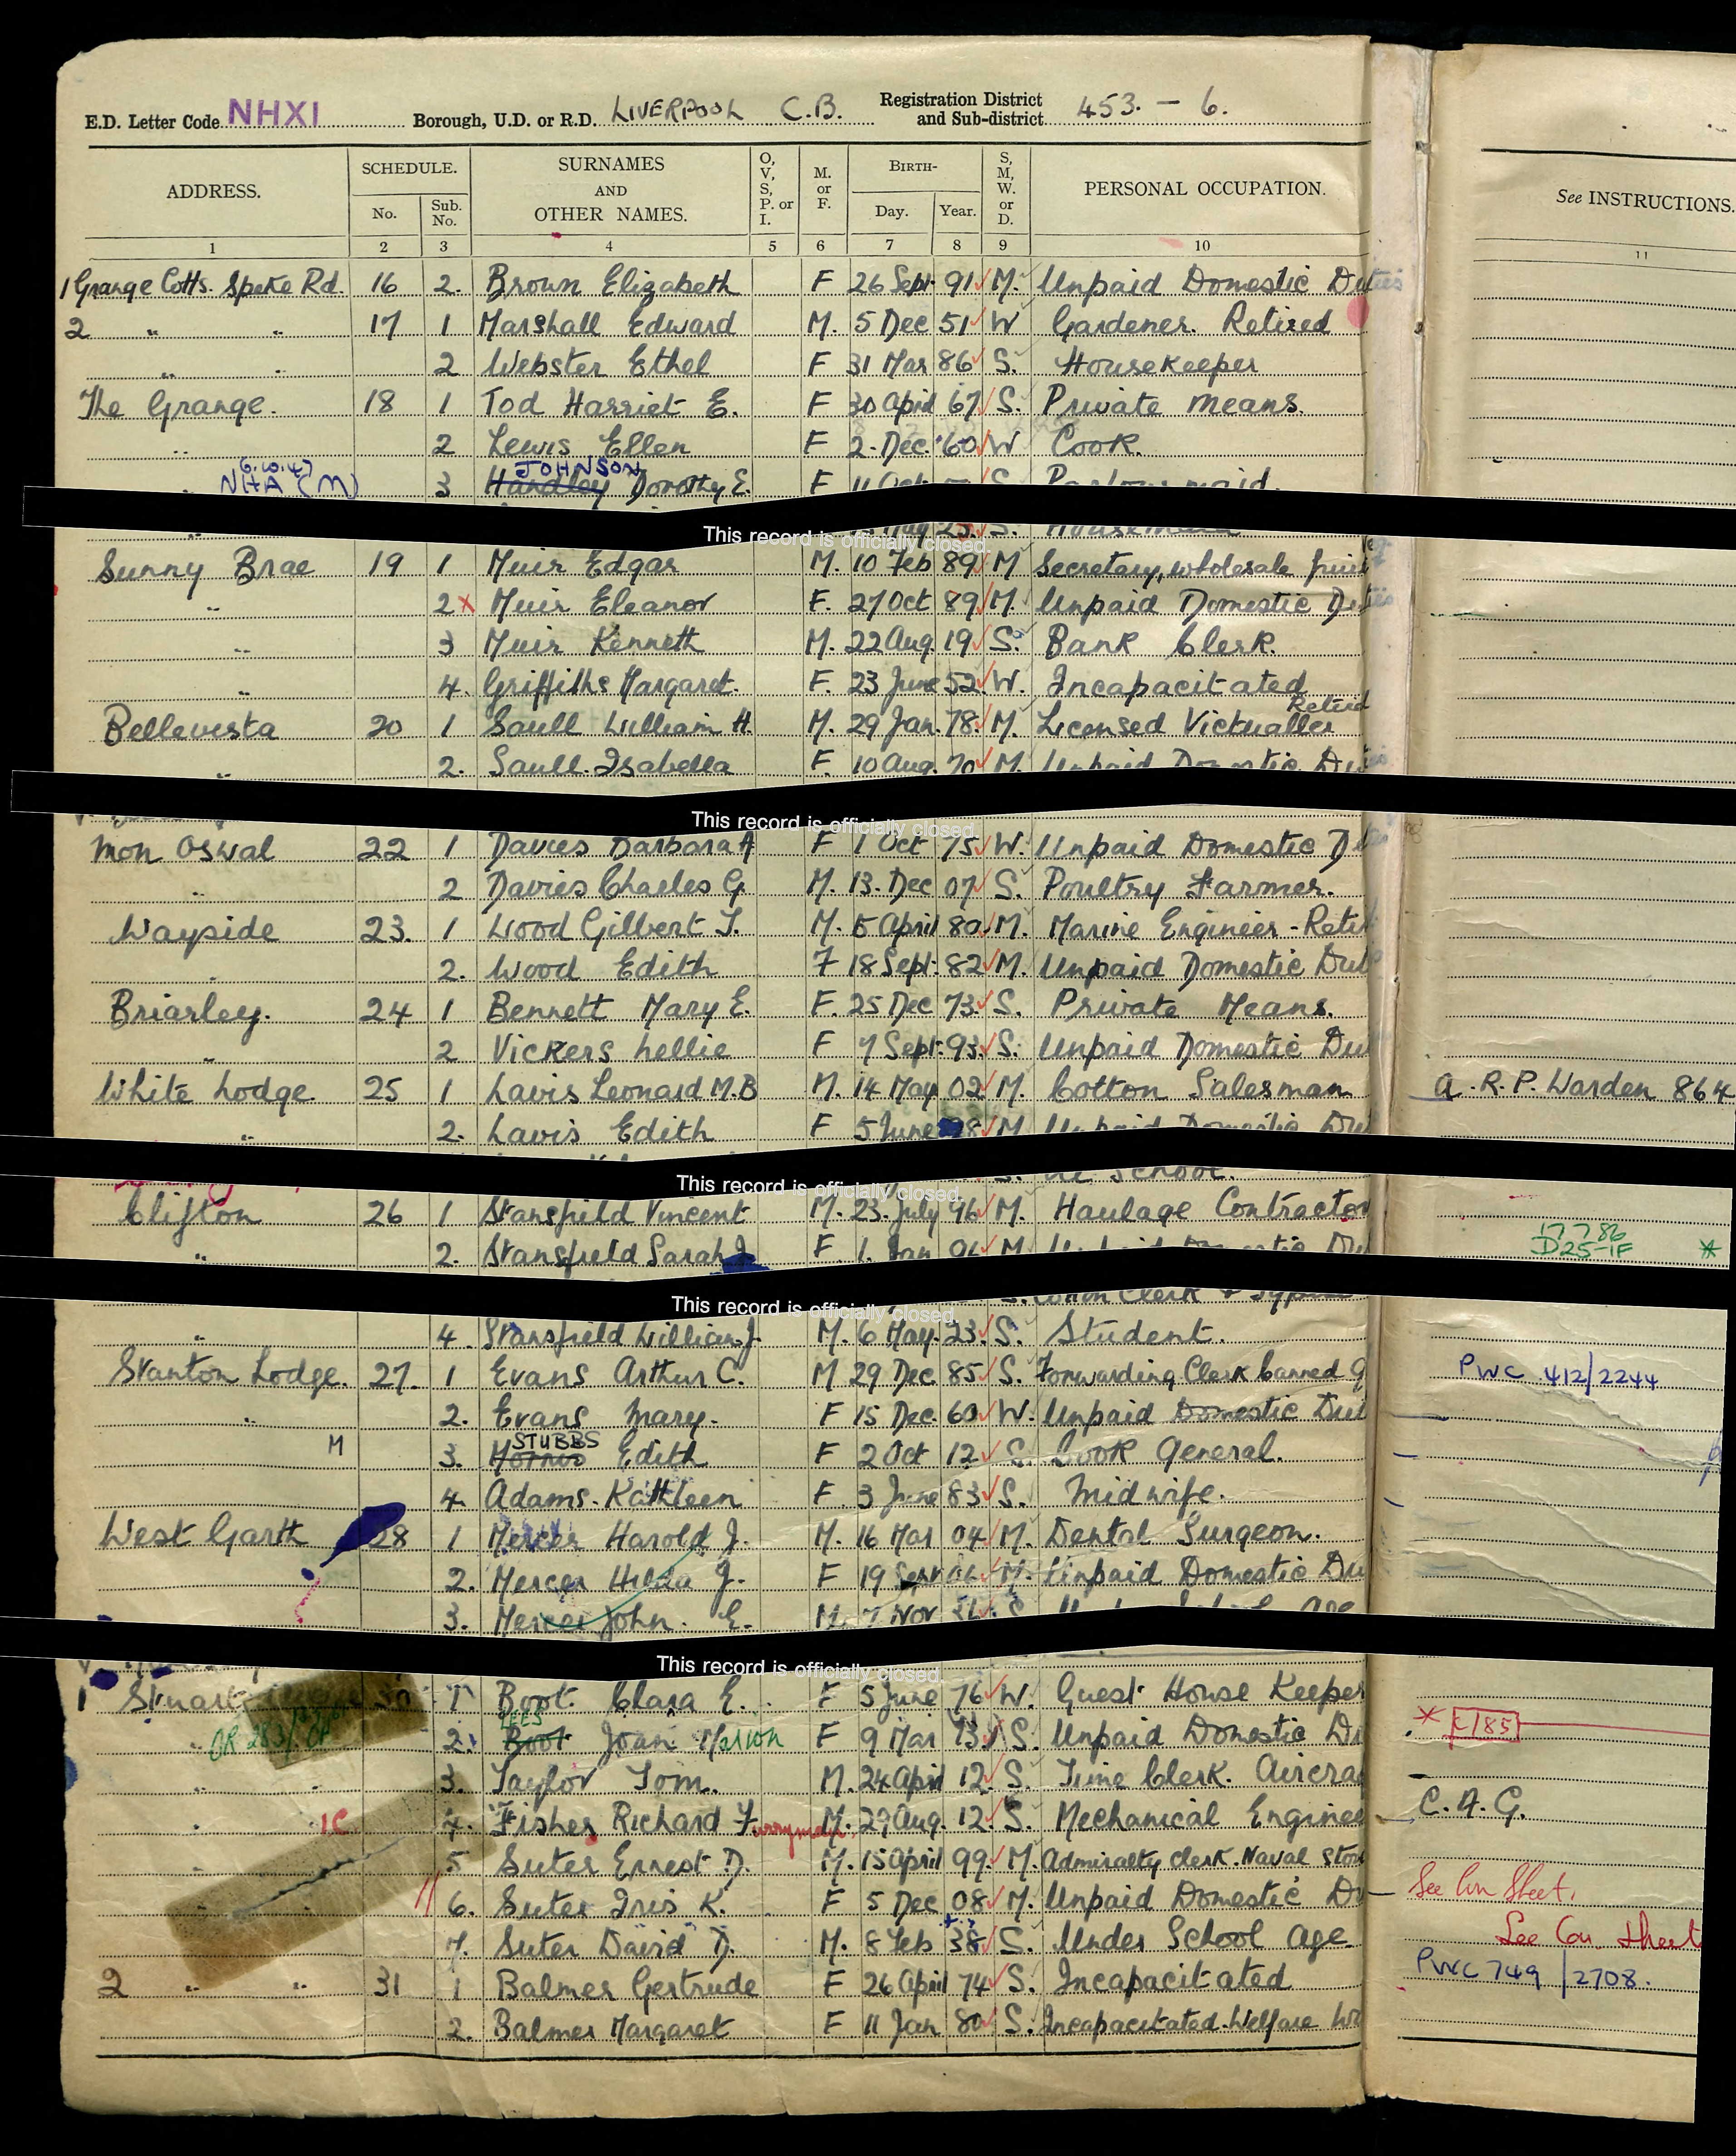 E.D. Letter Code NHXI Borough, U.D. or R.D. LIVERPOOL C.B. Registration District and Sub-district 453. - 6.
ADDRESS. SCHEDULE. No. Sub. No. SURNAMES AND OTHER NAMES. O, V, S, P. or I. M. or F. BIRTH- Day. Year. S, M, W. or D. PERSONAL OCCUPATION. See INSTRUCTIONS.
1 2 3 4 5 6 7 8 9 10 11
1 Grange Cotts. Speke Rd. 16 2. Brown Elizabeth F 26 Sept. 91 M. Unpaid Domestic Duties
2 " " 17 1 Marshall Edward M. 5 Dec 51 W Gardener. Retired
" " 2 Webster Ethel F 31 Mar 86 S. Housekeeper
The Grange. 18 1 Tod Harriet E. F 30 April 67 S. Private means.
" 2 Lewis Ellen F 2. Dec. 60 W Cook.
6.10.47
NHA (M) 3 Handley JOHNSON Dorothy E. F 11 Oct S Parlour maid.
This record is officially closed.
Sunny Brae 19 1 Muir Edgar M. 10 Feb 89 M Secretary, wholesale fruit
" 2 x Muir Eleanor F. 27 Oct 89 M. Unpaid Domestic Duties
" 3 Muir Kenneth M. 22 Aug. 19 S. Bank Clerk.
" 4. Griffiths Margaret. F. 23 June 52 W. Incapacitated
Bellevista 20 1 Saull William H. M. 29 Jan. 78 M. Licensed Victualler Retired
" 2. Saull. Isabella F. 10 Aug. 70 M. Unpaid Domestic Du
This record is officially closed.
Mon Oswal 22 1 Davies Barbara A F 1 Oct 75 W. Unpaid Domestic D
" 2 Davies Charles G. M. 13. Dec 07 S. Poultry Farmer.
Wayside 23. 1 Wood Gilbert T. M. 5 April 80 M. Marine Engineer - Reti
" 2. Wood Edith F 18 Sept. 82 M. Unpaid Domestic Dut
Briarley. 24 1 Bennett Mary E. F. 25 Dec 73 S. Private Means.
" 2 Vickers Nellie F 7 Sept. 93 S. Unpaid Domestic Du
White Lodge 25 1 Lavis Leonard M.B M. 14 May 02 M. Cotton Salesman A.R.P. Warden 864
" 2. Lavis Edith F 5 June 8 M Unpaid Domestic Du
This record is officially closed.
At School.
Clifton 26 1 Stansfield Vincent M. 23. July 96 M. Haulage Contractor
17 7 86
" 2. Stansfield Sarah J. F. 1. Jan M D25-1F *
This record is officially closed.
" 4. Stansfield William J. M. 6 May. 23. S. Student.
Stanton Lodge. 27. 1 Evans Arthur C. M 29 Dec. 85 S. Forwarding Clerk Canned G PWC 412/2244
" 2. Evans Mary. F 15 Dec. 60 W. Unpaid Domestic Dut
M 3. STUBBS Edith F 2 Oct 12 S. Cook General.
4. Adams. Kathleen F. 3 June 83 S. Midwife.
West Garth 28 1 Mercer Harold J. M. 16 Mar 04 M. Dental Surgeon.
2. Mercer Hilda J. F 19 Sept M. Unpaid Domestic Du
3. Mercer John. E. M. 7 Nov S
This record is officially closed.
1 Stuart 30 1 Boot Clara E. F 5 June 76 W. Guest House Keeper * C/185
" 2. Boot LEES Joan Marion F 9 Mar 13 S. Unpaid Domestic Du
" 3. Taylor Tom. M. 24 April 12 S. Time Clerk. Aircra
" 1C 4. Fisher Richard F M. 29 Aug. 12 S. Mechanical Enginee C.A.G.
" 5 Suter Ernest D. M. 15 April 99 M. Admiralty Clerk. Naval Stor
" 6. Suter Iris K. F 5 Dec 08 M. Unpaid Domestic Du See Con Sheet.
" 7. Suter David D. M. 8 Feb 38 S. Under School Age See Con. Sheet
2 " " 31 1 Balmer Gertrude F 26 April 74 S. Incapacitated PWC 749/2708.
2. Balmer Margaret F 11 Jan 80 S. Incapacitated. Welfare Wo